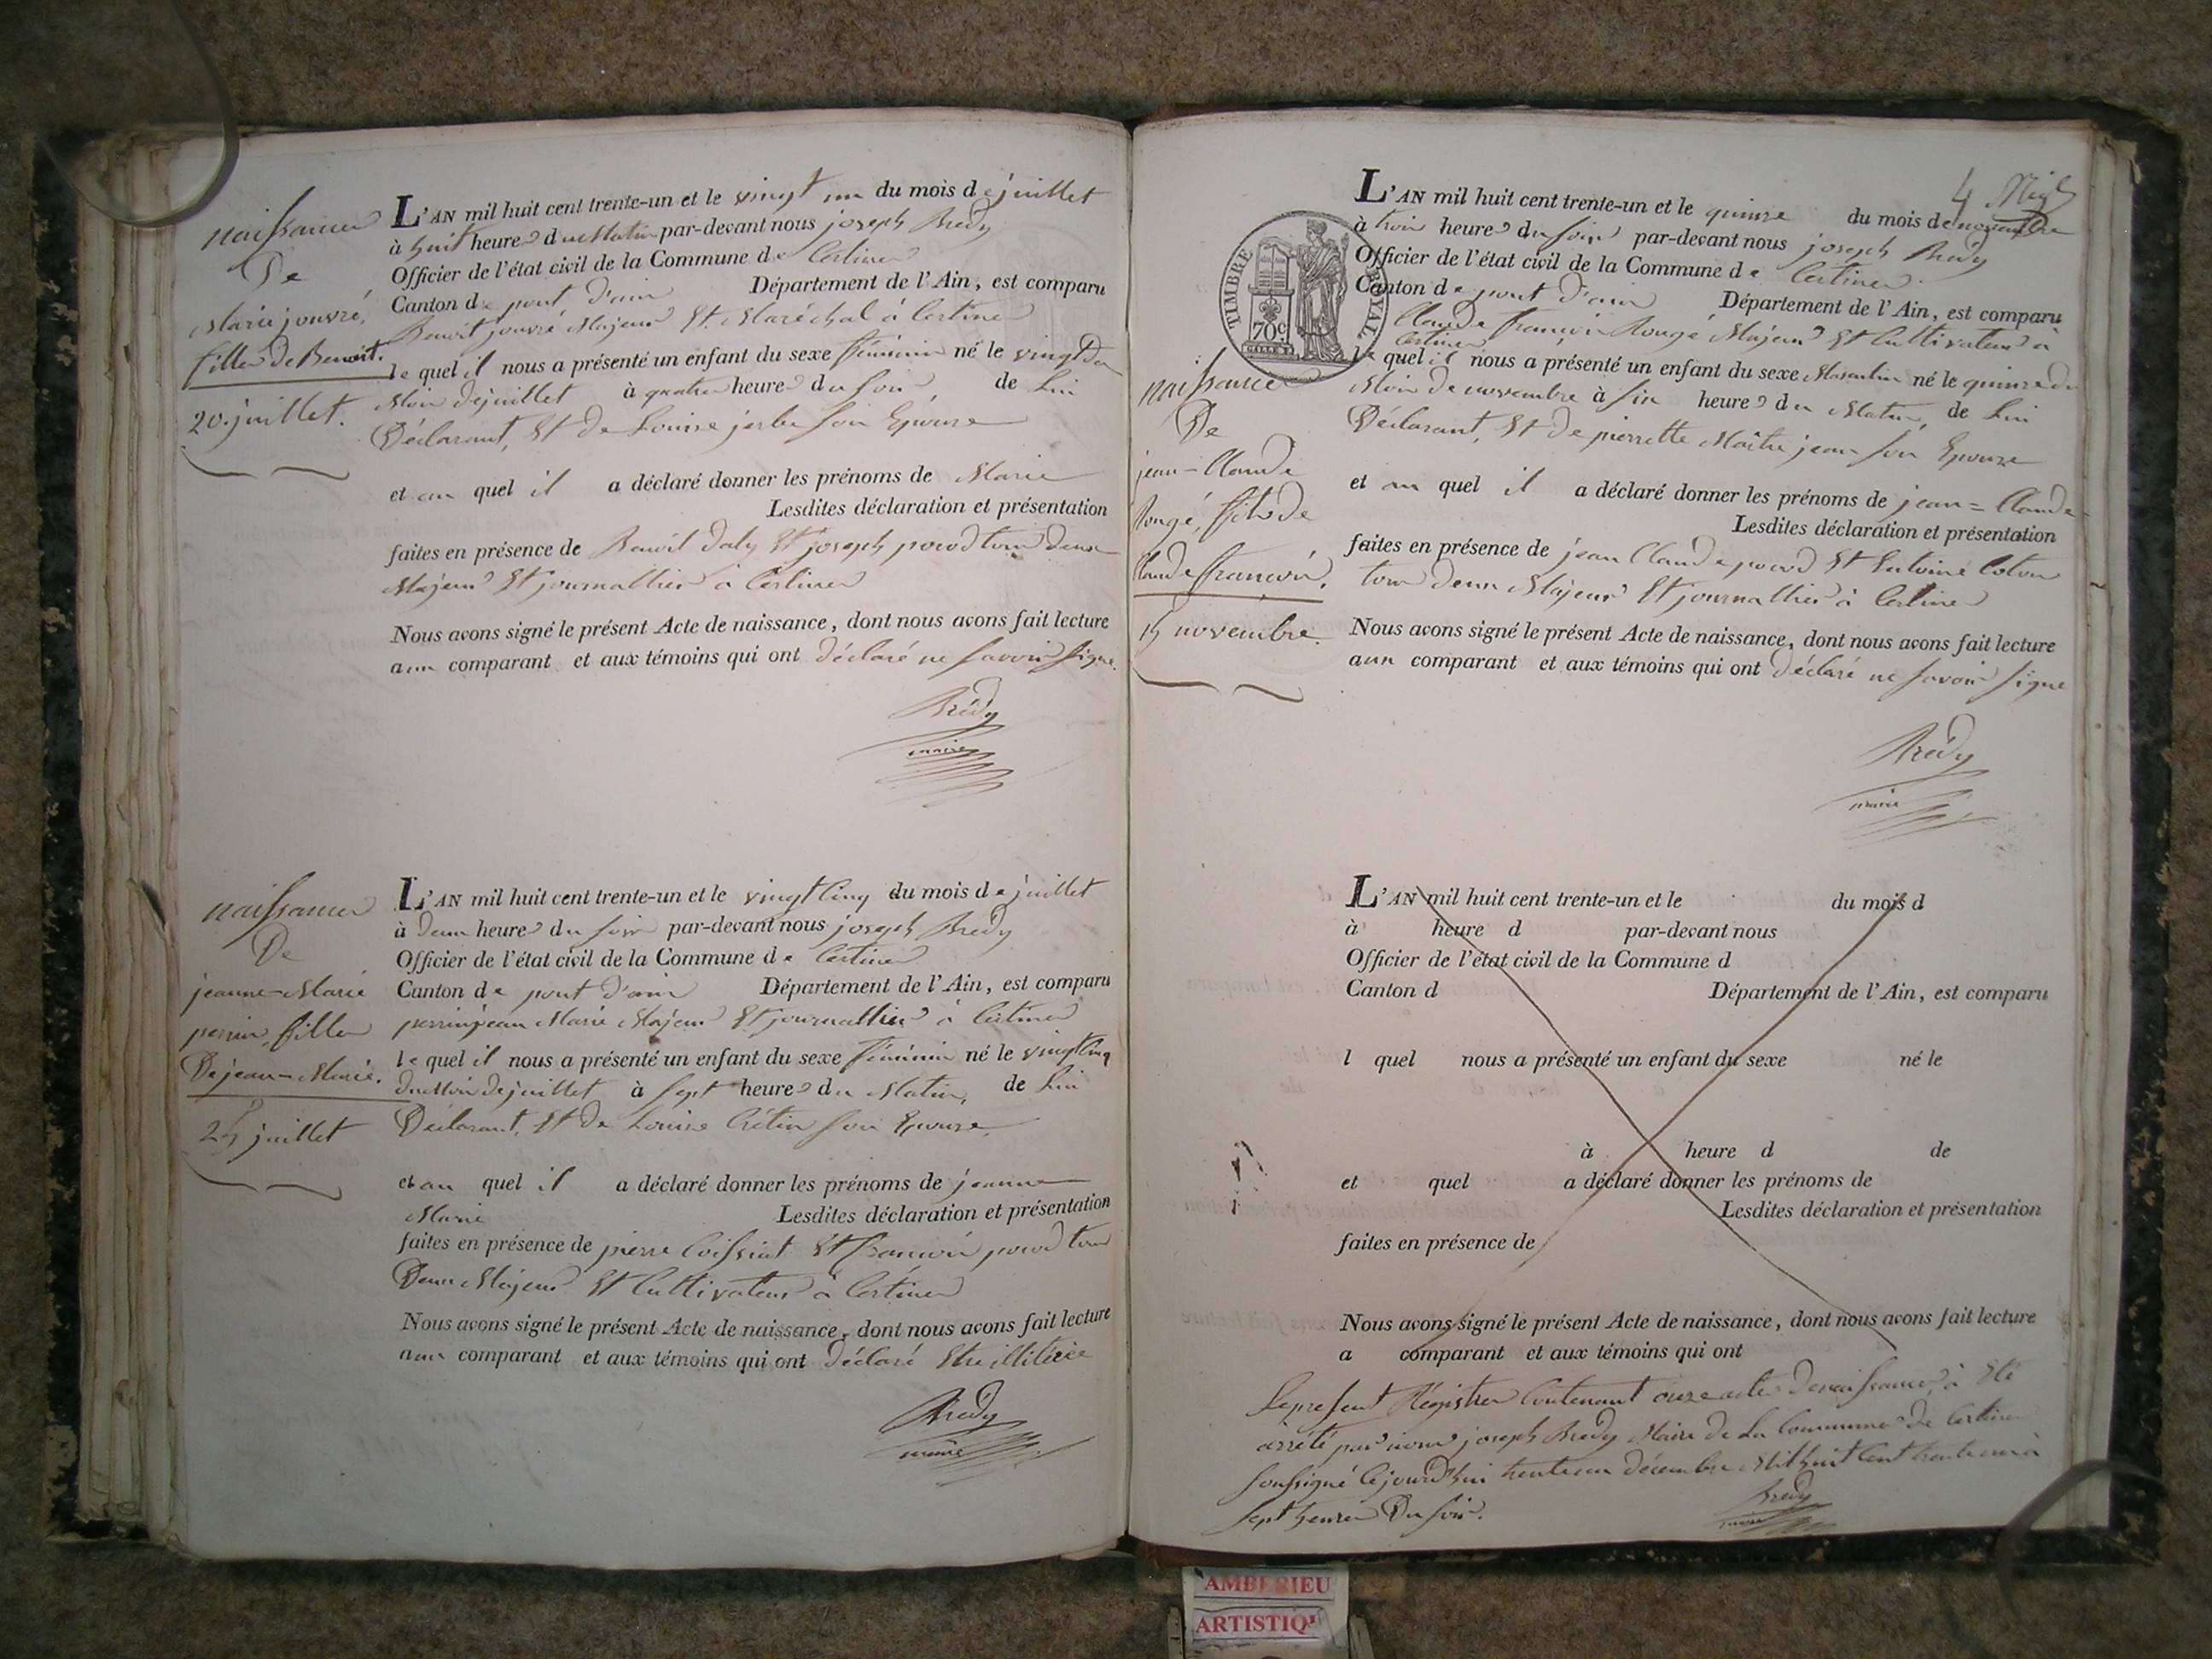 naissance
De
Marie jouvré,
fille de Benoit.
20 juillet.
L'AN mil huit cent trente-un et le vingt un du mois de juillet
à huit heures du Matin par-devant nous joseph Bredy
Officier de l'état civil de la Commune de Certines
Canton de pont d'ain Département de l'Ain, est comparu
Benoit jouvré Majeur Et Maréchal à Certines
lequel il nous a présenté un enfant du sexe féminin né le vingt du
Mois de juillet à quatre heures du soir de Lui
Déclarant, Et de Louise son Epouse
et au quel il a déclaré donner les prénoms de Marie
Lesdites déclaration et présentation
faites en présence de Benoit Et joseph tous deux
Majeurs Et journalliers à Certines
Nous avons signé le présent Acte de naissance, dont nous avons fait lecture
aux comparant et aux témoins qui ont déclaré ne savoir signe.
Brédy
maire
naissance
De
jeanne-Marie
perrin, fille
De jean-Marie.
25 juillet
L'AN mil huit cent trente-un et le vingt cinq du mois de juillet
à deux heures du soir par-devant nous joseph Bredy
Officier de l'état civil de la Commune de Certines
Canton de pont d'ain Département de l'Ain, est comparu
perrin jean Marie Majeur Et journallier à Certines
lequel il nous a présenté un enfant du sexe féminin né le vingt cinq
du Mois de juillet à sept heures du Matin, de Lui
Déclarant, Et de Louise Crétin son Epouse,
et au quel il a déclaré donner les prénoms de jeanne
Marie Lesdites déclaration et présentation
faites en présence de pierre Et françois tous
Deux Majeurs Et Cultivateurs à Certines
Nous avons signé le présent Acte de naissance, dont nous avons fait lecture
aux comparant et aux témoins qui ont déclaré Etre
Bredy
maire
4
TIMBRE ROYAL
70c
naissance
De
jean-Claude
Rougé, fils de
Claude françois.
15 novembre
L'AN mil huit cent trente-un et le quinze du mois de novembre
à trois heures du soir par-devant nous joseph Bredy
Officier de l'état civil de la Commune de Certines
Canton de pont d'ain Département de l'Ain, est comparu
Claude françois Rougé Majeur Et Cultivateur à
Certines
lequel il nous a présenté un enfant du sexe Masculin né le quinze du
Mois de novembre à six heures du Matin, de Lui
Déclarant, Et de pierrette Maître jean son Epouse
et au quel il a déclaré donner les prénoms de jean-Claude
Lesdites déclaration et présentation
faites en présence de jean Claude Et Antoine
tous deux Majeurs Et journalliers à Certines
Nous avons signé le présent Acte de naissance, dont nous avons fait lecture
aux comparant et aux témoins qui ont Déclaré ne savoir signe
Brédy
maire
L'AN mil huit cent trente-un et le du mois d
à heure d par-devant nous
Officier de l'état civil de la Commune d
Canton d Département de l'Ain, est comparu
l quel nous a présenté un enfant du sexe né le
à heure d de
et quel a déclaré donner les prénoms de
Lesdites déclaration et présentation
faites en présence de
Nous avons signé le présent Acte de naissance, dont nous avons fait lecture
a comparant et aux témoins qui ont
Le present Régistre Contenant onze actes de naissance, à Eté
arrété par nous joseph Bredy Maire de La Commune de Certines
soussigné Cejourd'hui trente un décembre Mil huit Cent trente un à
sept heures Du soir.
Bredy
maire
AMBERIEU
ARTISTIQU